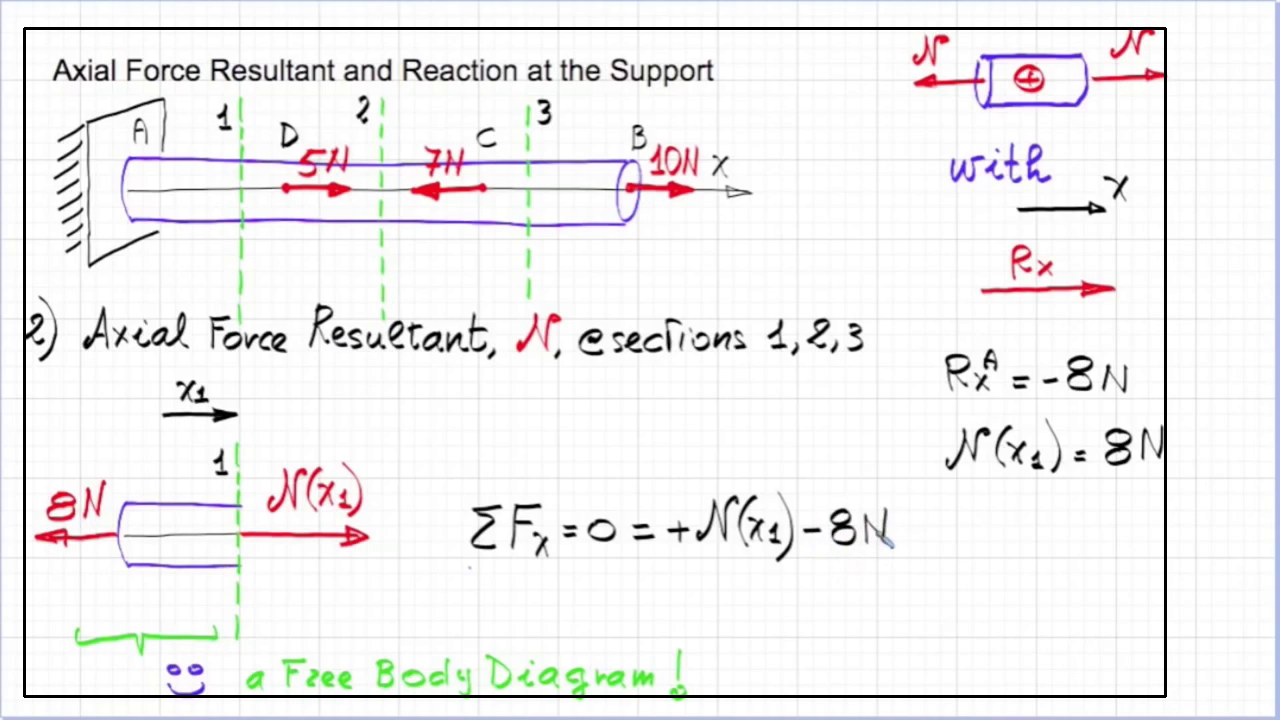 Axial Force Resultant and Reaction at the Support
N N
A 1 D 2 C 3 B
5N 7N 10N x
with
x
Rx
2) Axial Force Resultant, N, @sections 1,2,3
RxA = -8N
x1
1
N(x1) = 8N
8N N(x1)
ΣFx = 0 = +N(x1) - 8N
a Free Body Diagram!